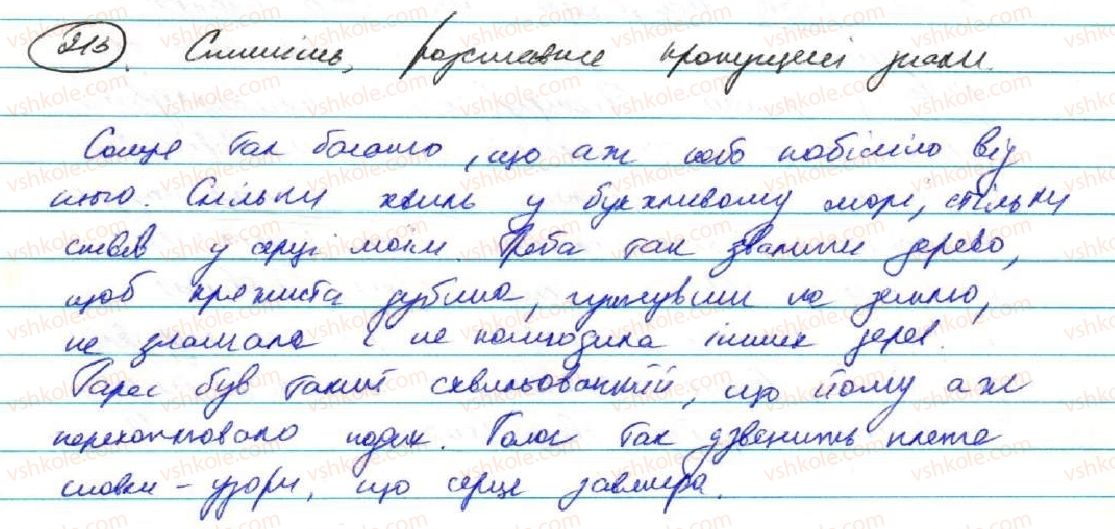 213. Спишіть, розставте пропущені знаки.
Сонця так багато, що аж небо побіліло від
нього. Скільки хвиль у бурхливому морі, стільки
співів у серці моїм. Треба так звалити дерево,
щоб кряжиста дубина, гупнувши на землю,
не зламала і не пошкодила інших дерев.
Тарас був такий схвильований, що йому аж
перехоплювало подих. Голос так дзвенить плете
словки - узори, що серце завмира.